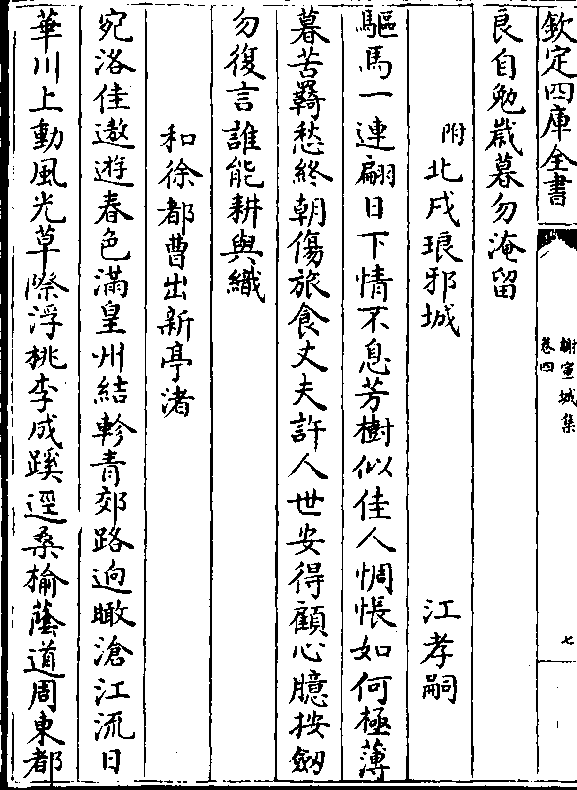 欽定四庫全書
謝宣城集
卷四
七
良自勉嵗暮勿淹留
附北戍琅邪城 江孝嗣
驅馬一連翩日下情不息芳樹似佳人惆悵如何極薄
暮苦羇愁終朝傷旅食丈夫許人世安得顧心臆按劒
勿復言誰能耕與織
和徐都曹出新亭渚
宛洛佳遨遊春色滿皇州結軫青郊路逈瞰滄江流日
華川上動風光草際浮桃李成蹊逕桑榆蔭道周東都